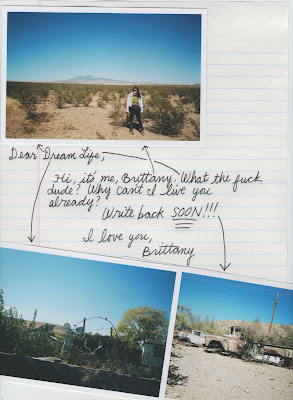 Dear Dream Life,
Hi, it's me, Brittany. What the fuck
dude? Why can't I live you
already?
Write back SOON!!!
I love you,
Brittany